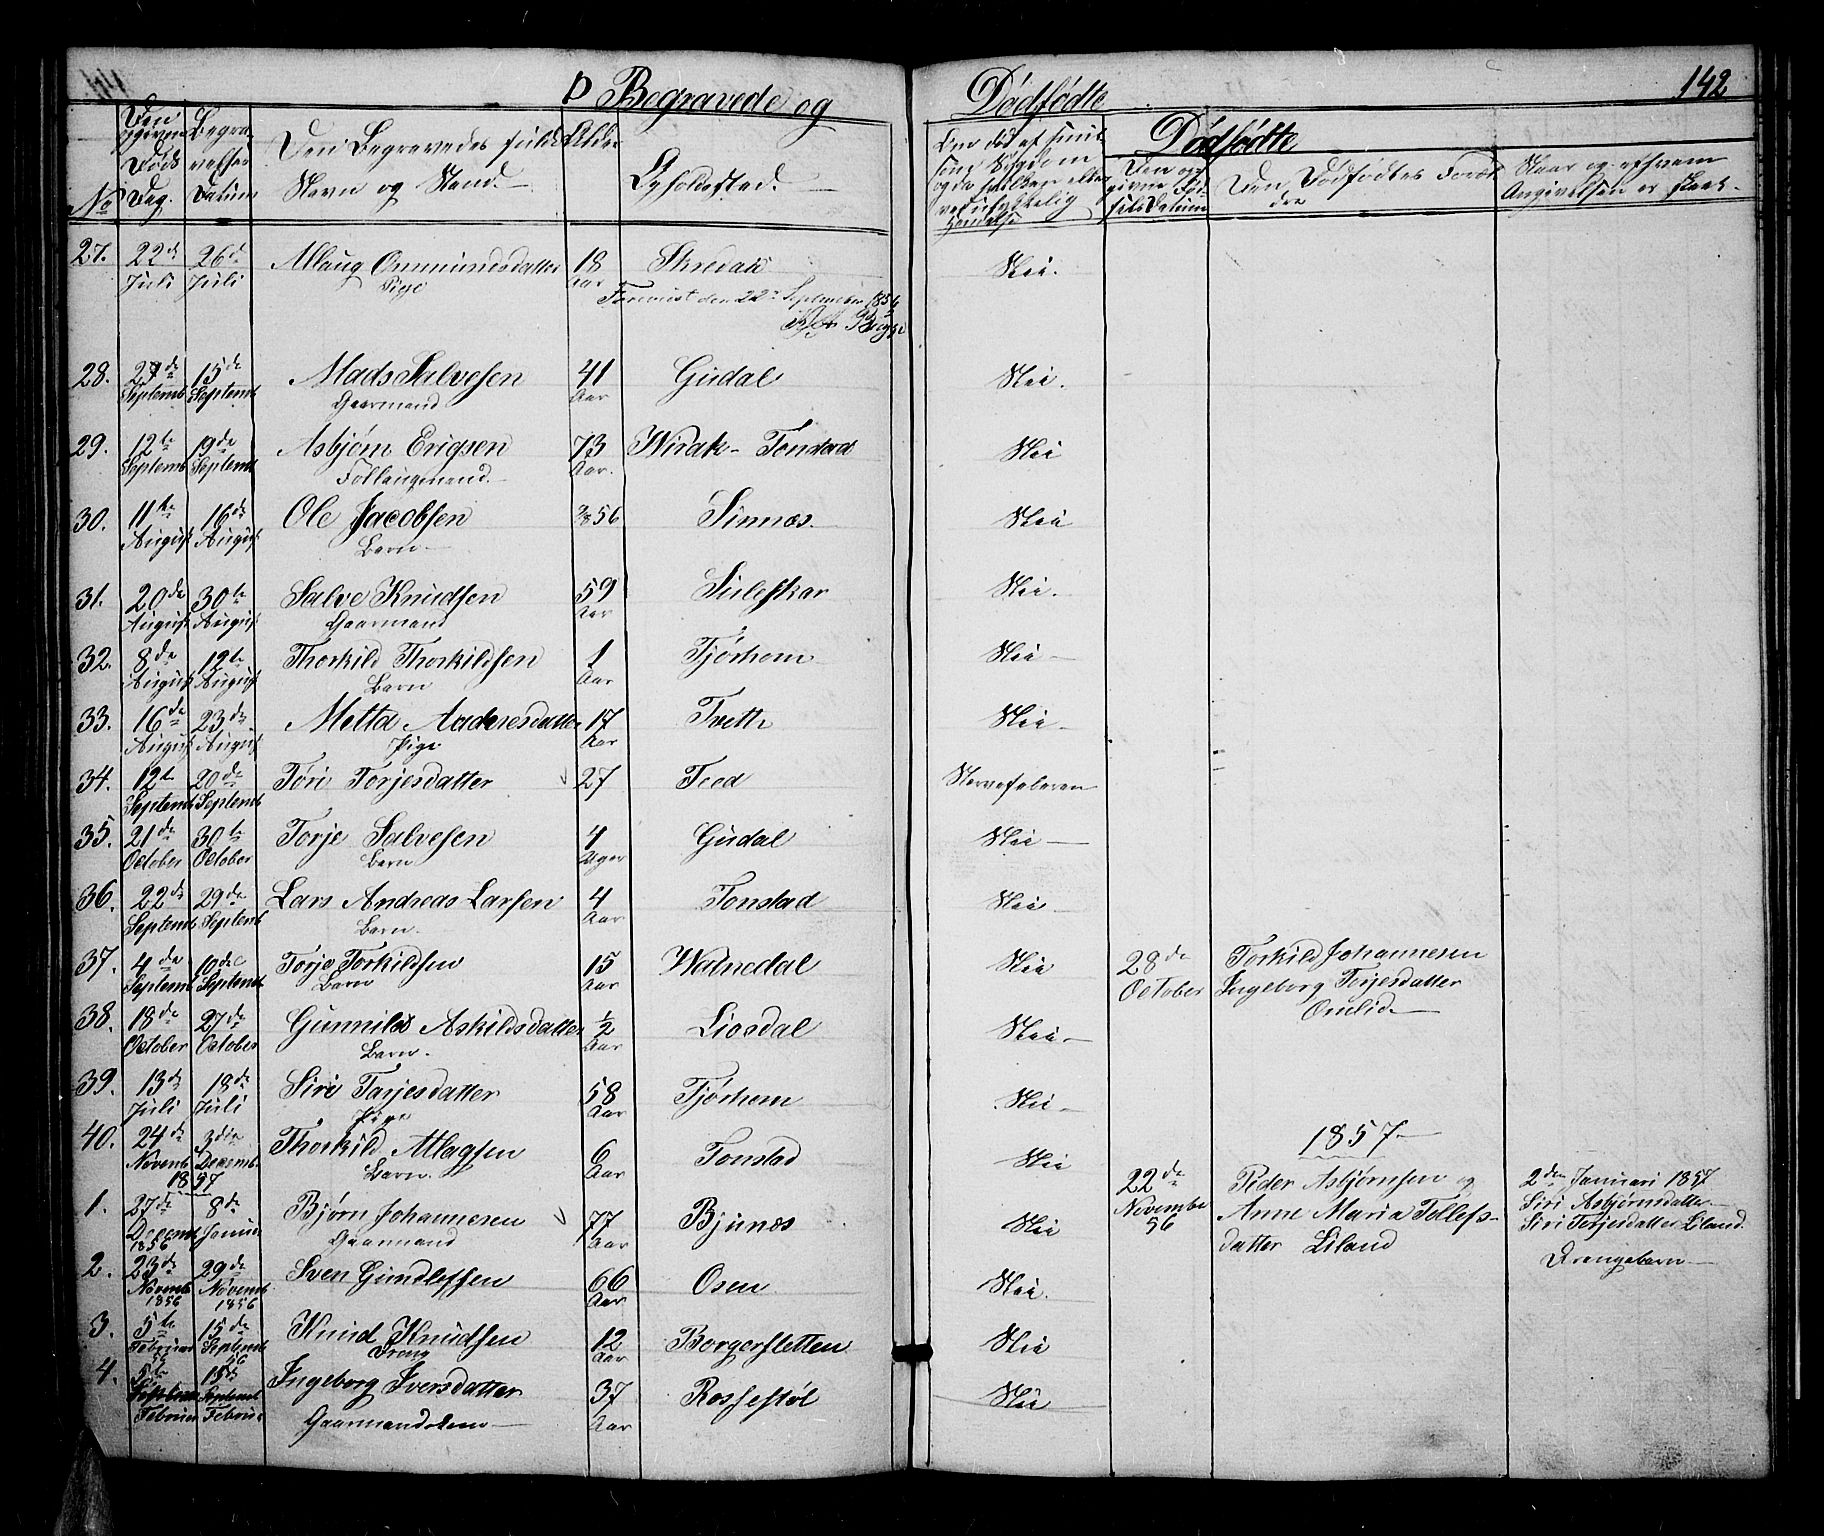 D Begravede og Dødfødte 142
No
Den opgivne Døds Dag.
Begravelses Datum
Den Begravedes fulde Navn og Stand.
Alder
Opholdssted.
Dødfødte
Den Dødfødtes Forældre
Naar og af hvem Angivelsen er skeet
27. 22de Juli 26de Juli Allaug Ommundsdatter 18 Aar Skredaa Nei.
Pige
Foreviist den 22de September 1856
28. 27de Septemb 15de Septemb Mads Salvesen 41 Aar Gudal Nei.
Gaarmand
29. 12te Septemb 19de Septemb Asbjørn Erigsen 73 Aar. Wirak - Tonstad Nei
Follaugmand
30. 11te August 16de August Ole Jacobsen 56 Sinnæs Nei
Barn
31. 20de August 30te August Salve Knudsen 59 Aar Suleskar Nei.
Gaarmand
32. 8de August 12te August Thorkild Thorkildsen 1 Aar Tjørhom Nei
Barn
33. 16de August 23de August Metta Aadnesdatter 17 Aar Tveth Nei
Pige
34. 12te Septemb 20de Septemb Tori Torjesdatter 27 Feed Nervefeberen
35. 21de October 30te October Torje Salvesen 4 Uger Gudal Nei
Barn
36. 22de Septemb 29de Septemb Lars Andreas Larsen 4 Aar Tonstad Nei
Barn
37. 4de Septemb 10de Septemb Torje Torkildsen 15 Aar Watnedal Nei
Barn
28de October Torkild Johannesen
Ingeborg Torjesdatter
Omlid
38. 18de October 27de October Gunnild Askildsdatter ½ Aar Liosdal Nei
Barn.
39. 13de Juli 18de Juli Siri Tarjesdatter 58 Aar Tjørhom Nei
Pige
40. 24de Novemb 3die Decemb. Thorkild Atlagsen 6 Aar Tonstad Nei
Barn.
1857
1857
1. 27de Decemb 1856 8de Januar Bjørn Johannesen 77 Aar Bjunæs Nei
Gaarmand
22de November 56 Peder Asbjørnsen og
Anne Maria Tollefsdatter Liland
2den Januari 1857
Siri Asbjørnsdatter
Siri Torjesdatter Liland
Drengebarn
2. 23de Novemb 1856 29de Novemb 1856 Sven Gundlefsen 66 Aar Osen Nei.
3. 5te Februar 15de Septemb 56 Knud Knudsen 12 Aar Borgersletten Nei
Dreng
4. 5te Februar 15de Septemb Februar Ingeborg Iversdatter 37 Aar Rossestøl Nei
Gaarmandskone